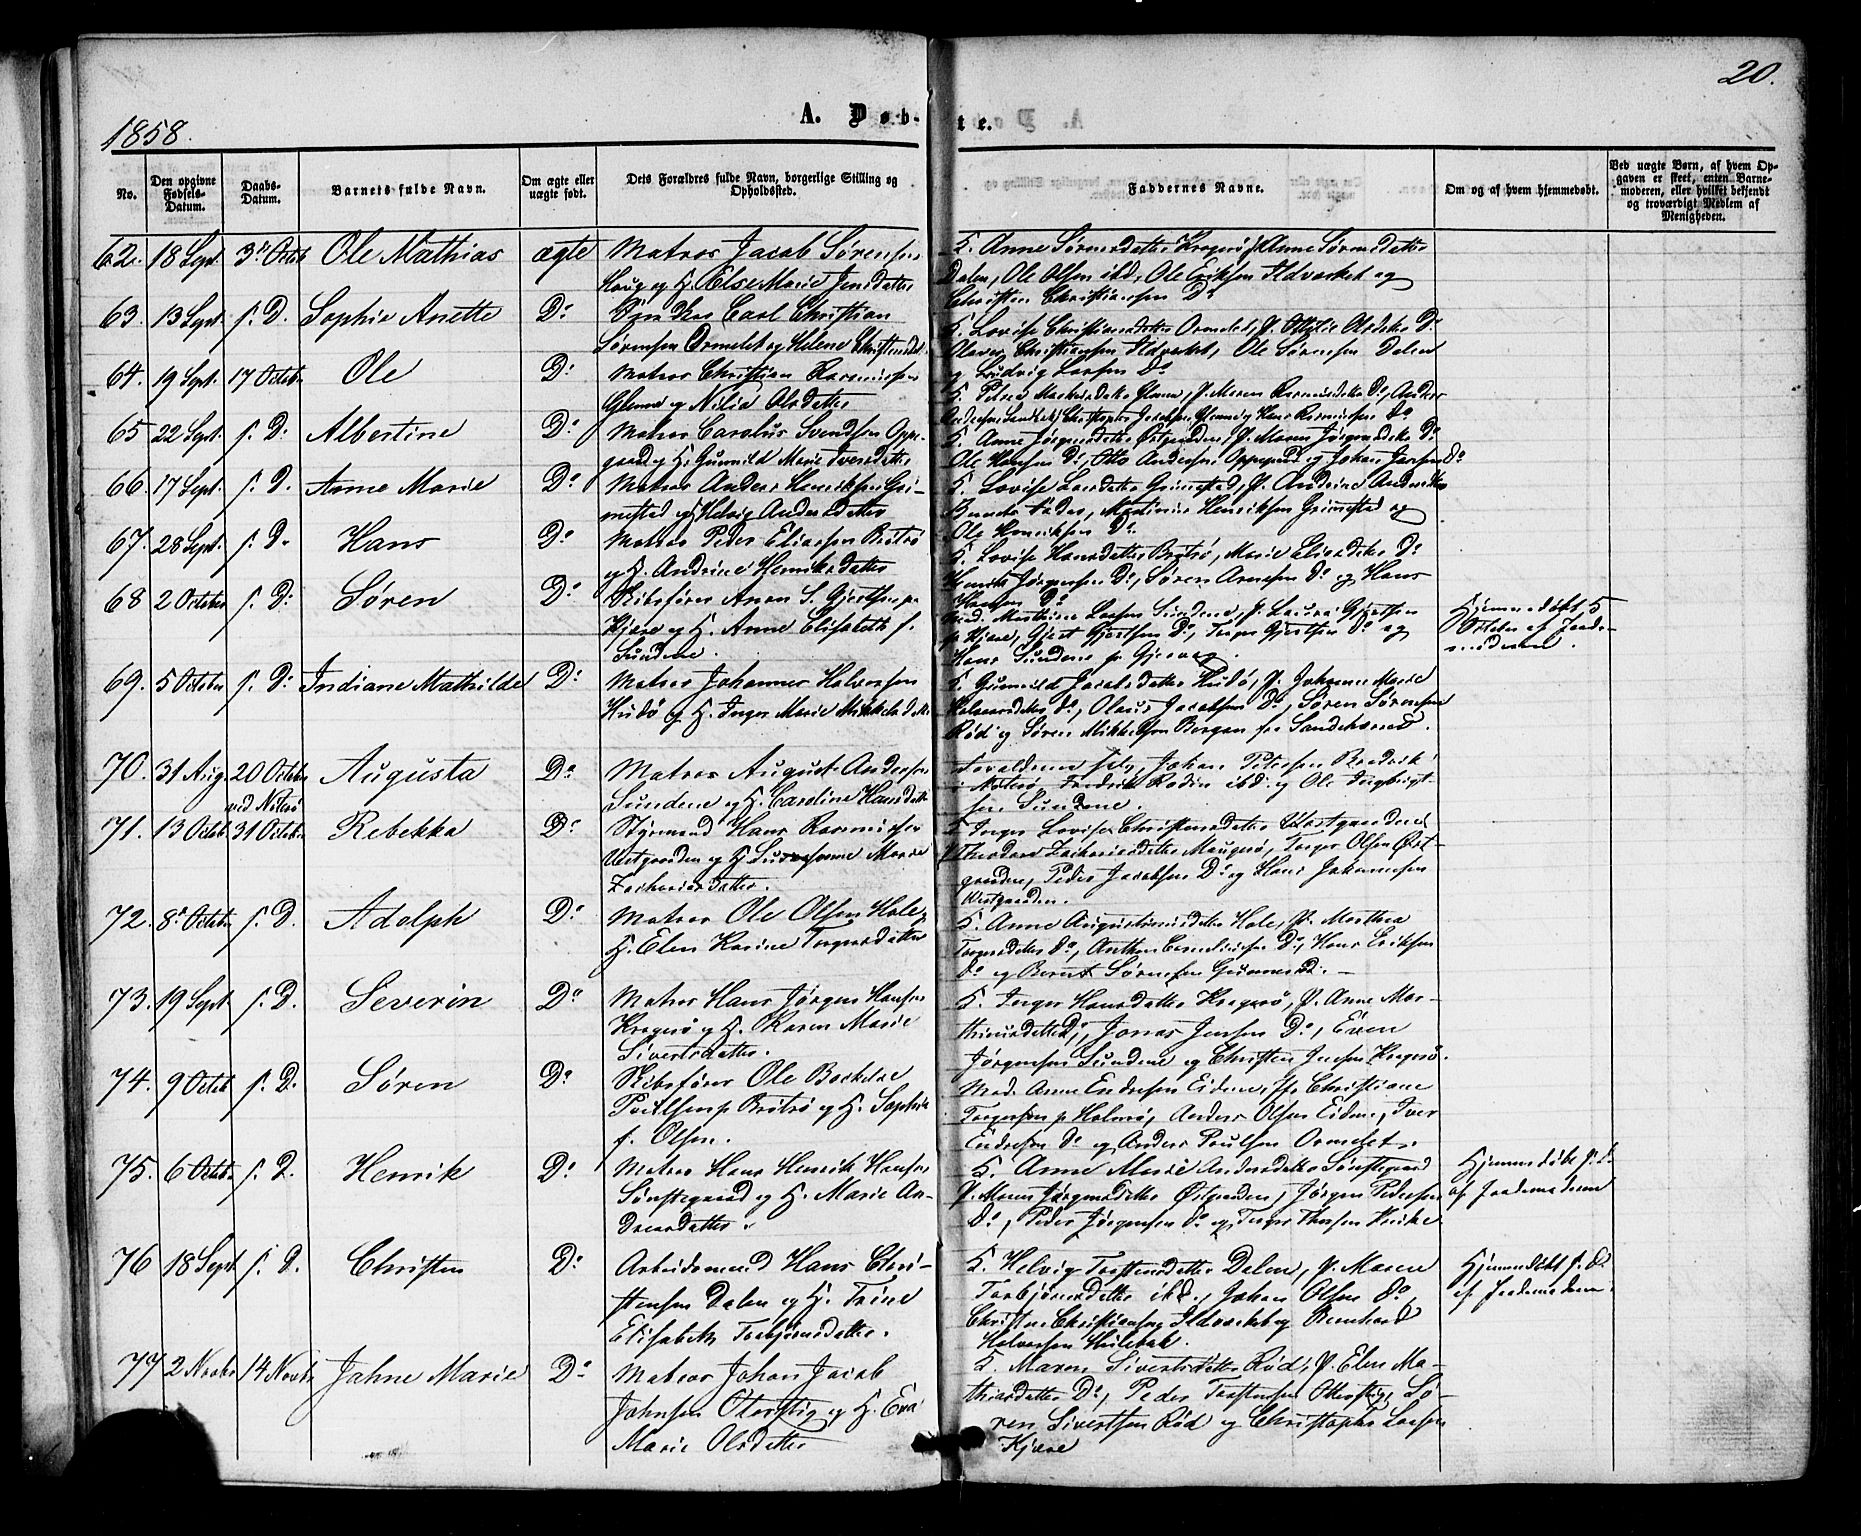 20.
1858.
A. Døb-
te.
No.
Den opgivne Fødsels-Datum.
Daabs-Datum.
Barnets fulde Navn.
Om ægte eller uægte født.
Dets Forældres fulde Navn, borgerlige Stilling og Opholdssted.
Faddernes Navne.
Om og af hvem hjemmedøbt.
Ved uægte Børn, af hvem Op-
gaven er skeet, enten Barne-
moderen, eller hvilket bekjendt
og troværdigt Medlem af
Menigheden.
62. 18 Sept. 3die Octob Ole Mathias ægte Matros Jacob Sørensen
Haug og H. Else Marie Jensdatter
K. Anne Sørensdatter Kragerø, P. Anne Sørensdatter
Dalen, Ole Olsen ibd., Ole Eriksen Ildverket og
Christen Christiansen Do
63. 13 Sept. s. D. Sophie Anette Do Carl Christian
Sørensen Ormelet og Helene Christensdat.
K. Lovise Christiansdatter Ormelet, P. Otilie Olsdatter Do
Olaves Christiansen Ildverket, Ole Sørensen Dalen
og Ludvig Larsen Do
64. 19 Sept. 17 Octobr Ole Do Matros Christian Rasmussen
Glenne og Nilia Olsdatter
65 22 Sept. s. D. Albertine Do Matros Carolus Svendsen Oppe-
gaard og H. Gunnild Marie Iversdatter
K. Anne Jørgensdatter Østgarden, P. Maren Jørgensdatter Do
Ole Hansen Do, Otto Andersen Oppegaard og Johan Larsen Do
66. 17 Sept. s. D. Anne Marie Do Matros Anders Henriksen Gri-
mestad og H. Helvig Andersdatter
K. Lovise Larsdatter Grimestad, P. Andrine Andersdtr
Henriksen Grimestad og
Ole Henriksen Do
67. 28 Sept. s. D. Hans Do Matros Peder Eliassen Brøtsø
og H. Andrine Henriksdatter
K. Lovise Hansdatter Brøtsø, Marie Eliasdatter Do
Henrik Jørgensen Do, Søren Arnesen Do og Hans
Hansen Do
68 2 October s. D. Søren Do Skibsfører Anon S. Gjertsen p.
Kjære og H. Anne Elisabeth f.
Sundene.
Mad. Mathine Larsen Sundene, P. Laura Gjertsen
p. Kjære, Gjert Gjertsen Do, Torger Gjertsen Do og
Hans Sundene p.
Hjemmedøbt 5
October af Jorde-
moderen.
69. 5 Octobr s. D. Indiane Mathilde Do Matros Johannes Halvorsen
Hudø og H. Inger Marie Mikkelsdatter
K. Gunnild Jacobsdatter Hudø, P. Johanne Marie
Halvorsdatter Do, Olaus Jacobsen Do, Søren Sørensen
Rød og Søren Mikkelsen Bergan fra Sandeherred.
70. 31 Aug. 20 Octobr Augusta Do Matros August Andersen
ved Nøtterø
Sundene og H. Caroline Hansdatter
Forældrene selv, Johan Petersen
Nøtterø, Fredrik Rodin ibd. og Ole Ingbrigt-
sen Sundene.
71. 13 Octob. 31 Octobr Rebekka Do Styrmand Hans Rasmussen
Vestgaarden og H. Susanne Marie
Zachariasdatter.
K. Inger Lovise Christensdatter Vestgaarden
P. Theodora Zachariasdatter Maugerø, Torger Olsen Øst-
gaarden, Peder Jacobsen Do og Hans Johannesen
Vestgaarden.
72. 8de Octobr s. D. Adolph Do Matros Ole Olsen Hole,
H. Elen Karine Torgersdatter
K. Anne Augustinusdatter Hole, P. Marthea
Torgersdatter Do, Anthon Corneliussen Do, Hans Eriksen
Do og Bernt Sørensen Gunnerød. -
73. 19 Sept. s. D. Severin Do Matros Hans Jørgen Hansen
Kragerø og H. Karen Marie
Sivertsdatter.
K. Inger Hansdatter Kragerø, P. Anne Mar-
thinusdatter Do, Jonas Jensen Do, Even
Jørgensen Sundene og Christen Jensen Kragerø.
74. 9 Octob. s. D. Søren Do Skibsfører Ole Bærkelse
Poulsen p. Brøtsø og H. Sophie
f. Olsen.
Mad. Anne Endresen Eidene, Christiane
Torgersen p. Holmø, Anders Olsen Eidene, Iver
Endresen Do og Anders Poulsen Ormelet.
75. 6 Octobr s. D. Henrik Do Matros Hans Henrik Hansen
Sønstegaard og H. Marie An-
dreasdatter.
K. Anne Marie Andersdatter Sønstegaard
P. Maren Jørgensdatter Østgaarden, Jørgen Pedersen
Do, Peder Jørgensen Do og Torger Thorsen
Hjemmedøbt s. D.
af Jordemoderen
76 18 Sept. s. D. Christen Do Arbeidsmand Hans Chri-
stensen Dalen og H. Trine
Elisabeth Torbjørnsdatter.
K. Helvig Torstensdatter Dalen, P. Maren
Torbjørnsdatter ibd., Johan Olsen Do,
Christen Christiansen Ildverket og Bernhard
Halvorsen Hulebak.
Hjemmedøbt s. D.
af Jordemoderen.
77 2 Novbr 14 Novbr Jahne Marie Do Matros Johan Jacob
Johnsen Oterstig og H. Eva
Marie Olsdatter
K. Maren Sivertsdatter Rød, P. Elen Ma-
thiasdatter Do, Peder Torstensen Otterstig, Sø-
ren Sivertsen Rød og Christopher Larsen
Kjære